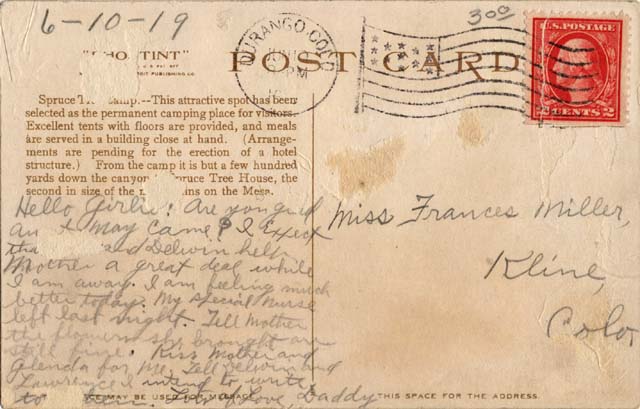 6-10-19
300
"PHOSTINT"
POST CARD
DURANGO, COLO.
PM
U.S. POSTAGE
2 CENTS 2
Spruce Camp.--This attractive spot has been
selected as the permanent camping place for visitors.
Excellent tents with floors are provided, and meals
are served in a building close at hand. (Arrange-
ments are pending for the erection of a hotel
structure.) From the camp it is but a few hundred
yards down the canyon Spruce Tree House, the
second in size of the ins on the Mesa.
Hello Girlie: Are you glad
an t May Came? I Expect
tha and Delwin help
Mother a great deal while
I am away. I am feeling much
better today. My special nurse
left last night. Tell Mother
the flowers she brought are
still fine. Kiss Mother and
Glenda for me, Tell Delwin and
Lawrence I intend to write
to them. Love, Daddy
Miss Frances Miller,
Kline,
Colo
MAY BE USED FOR MESSAGE
THIS SPACE FOR THE ADDRESS.